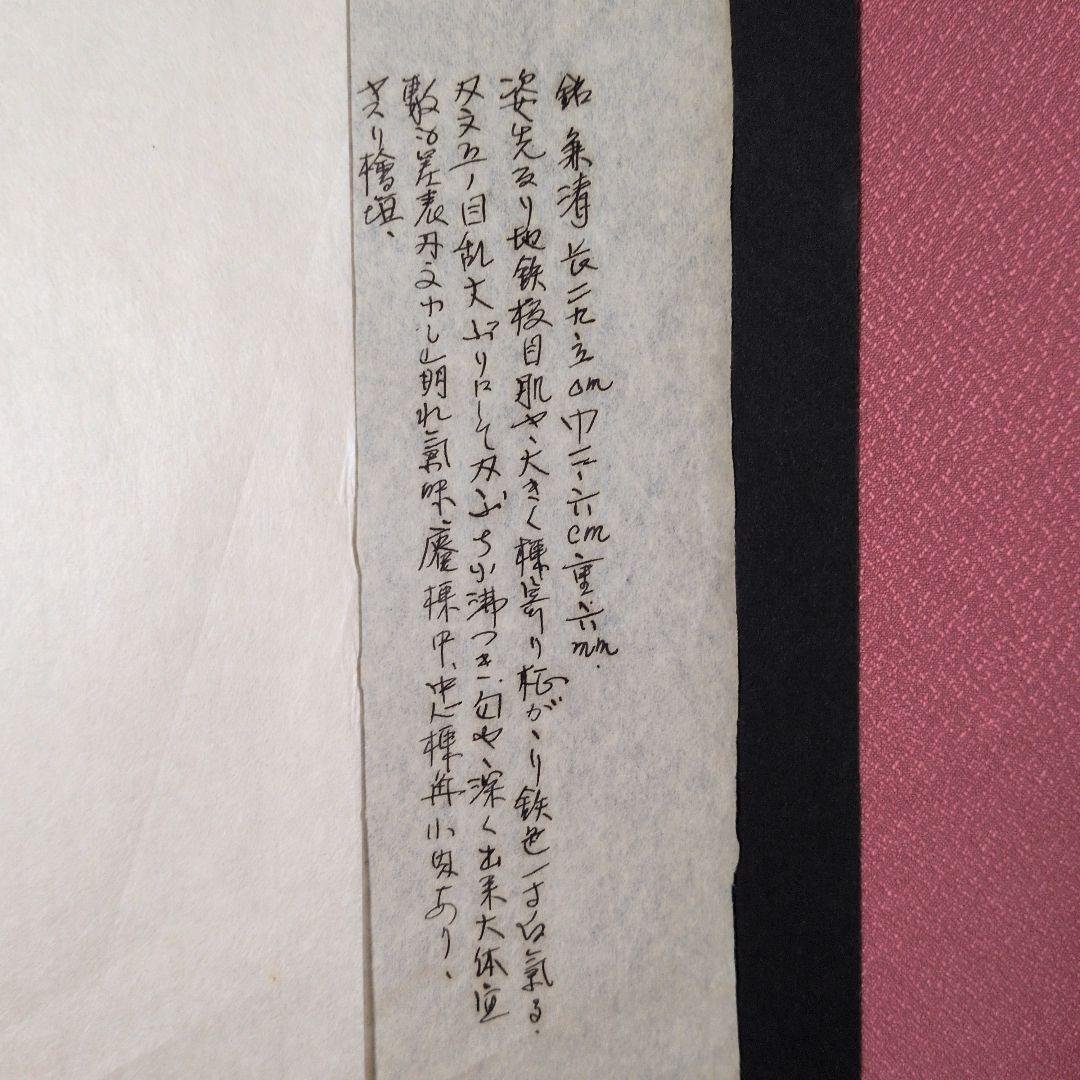 銘 兼清 長二九.五cm 巾二.六cm 重六mm.
姿先反り地鉄板目肌やゝ大きく棟寄り柾がゝり鉄色一寸白氣る.
刃文五ノ目乱大ぶりにして刃ぶち小沸つき、匂やゝ深く出来大体直
敷心差表刃文中し山崩れ氣味、庵棟中、中心棟丼小肉あり、
ヤスリ檜垣、